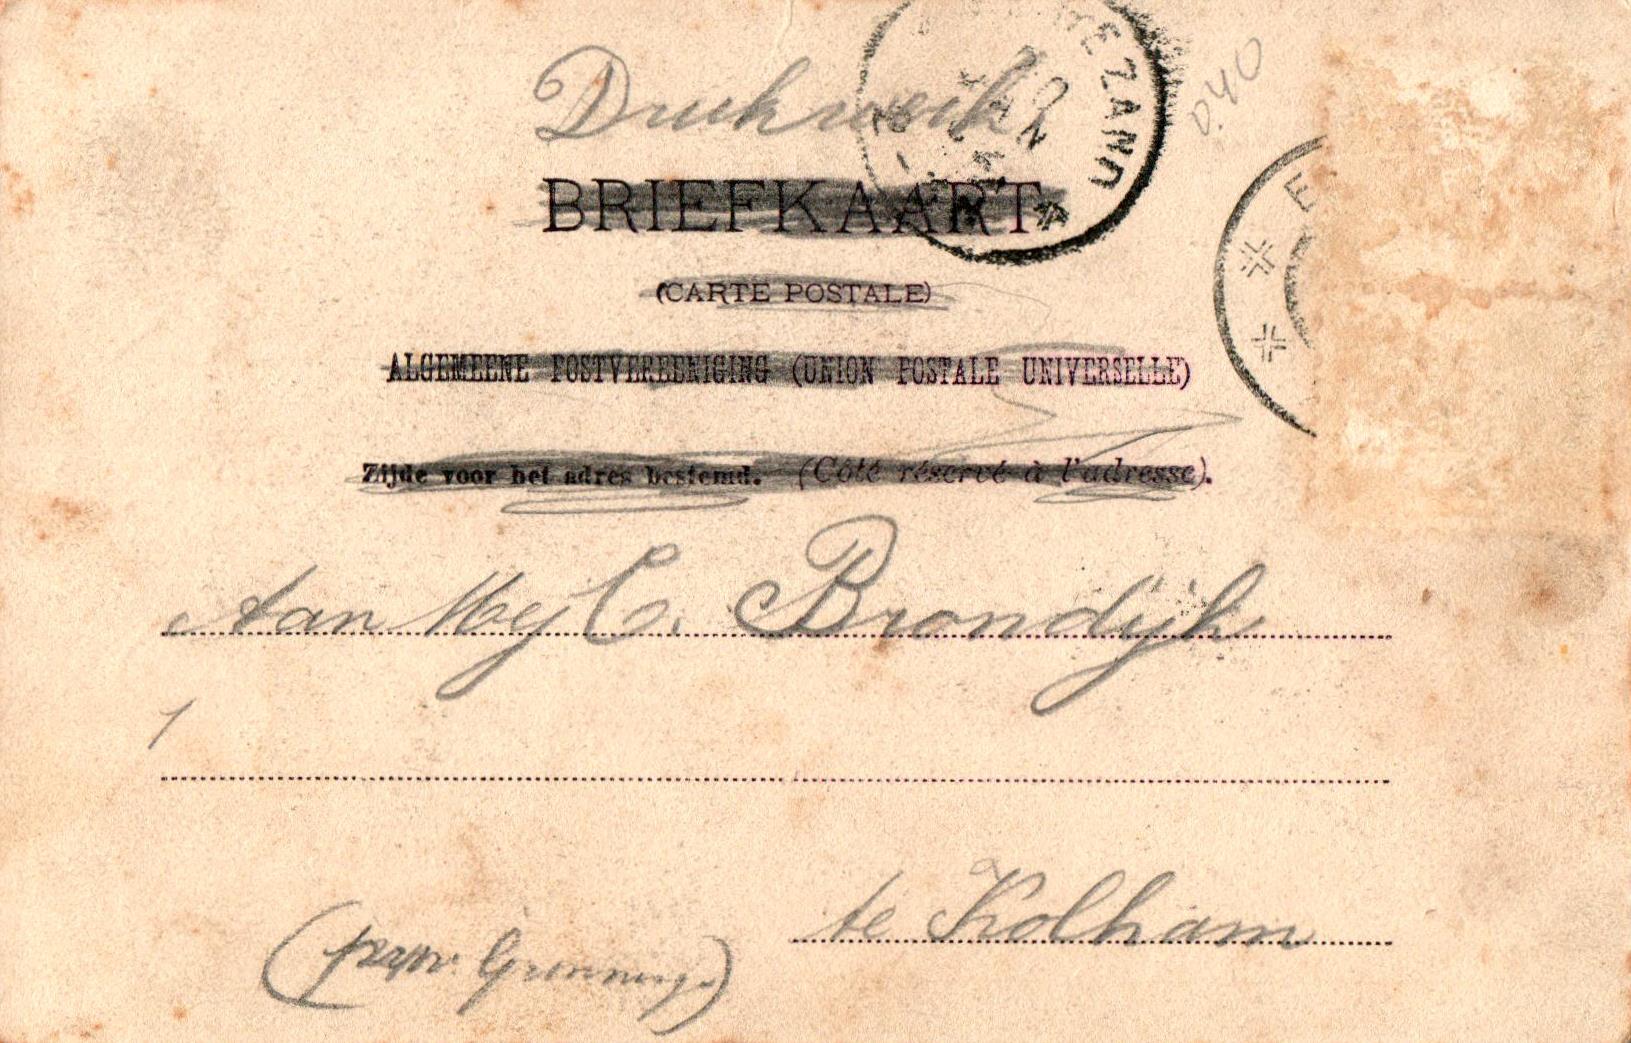 Drukwerk
D.40
BRIEFKAART
(CARTE POSTALE)
ALGEMEENE POSTVEREENIGING (UNION POSTALE UNIVERSELLE)
Zijde voor het adres bestemd. (Côté réservé à l'adresse).
Aan Mej C. Brondijk
te Kolham
(prov. Groninng.)